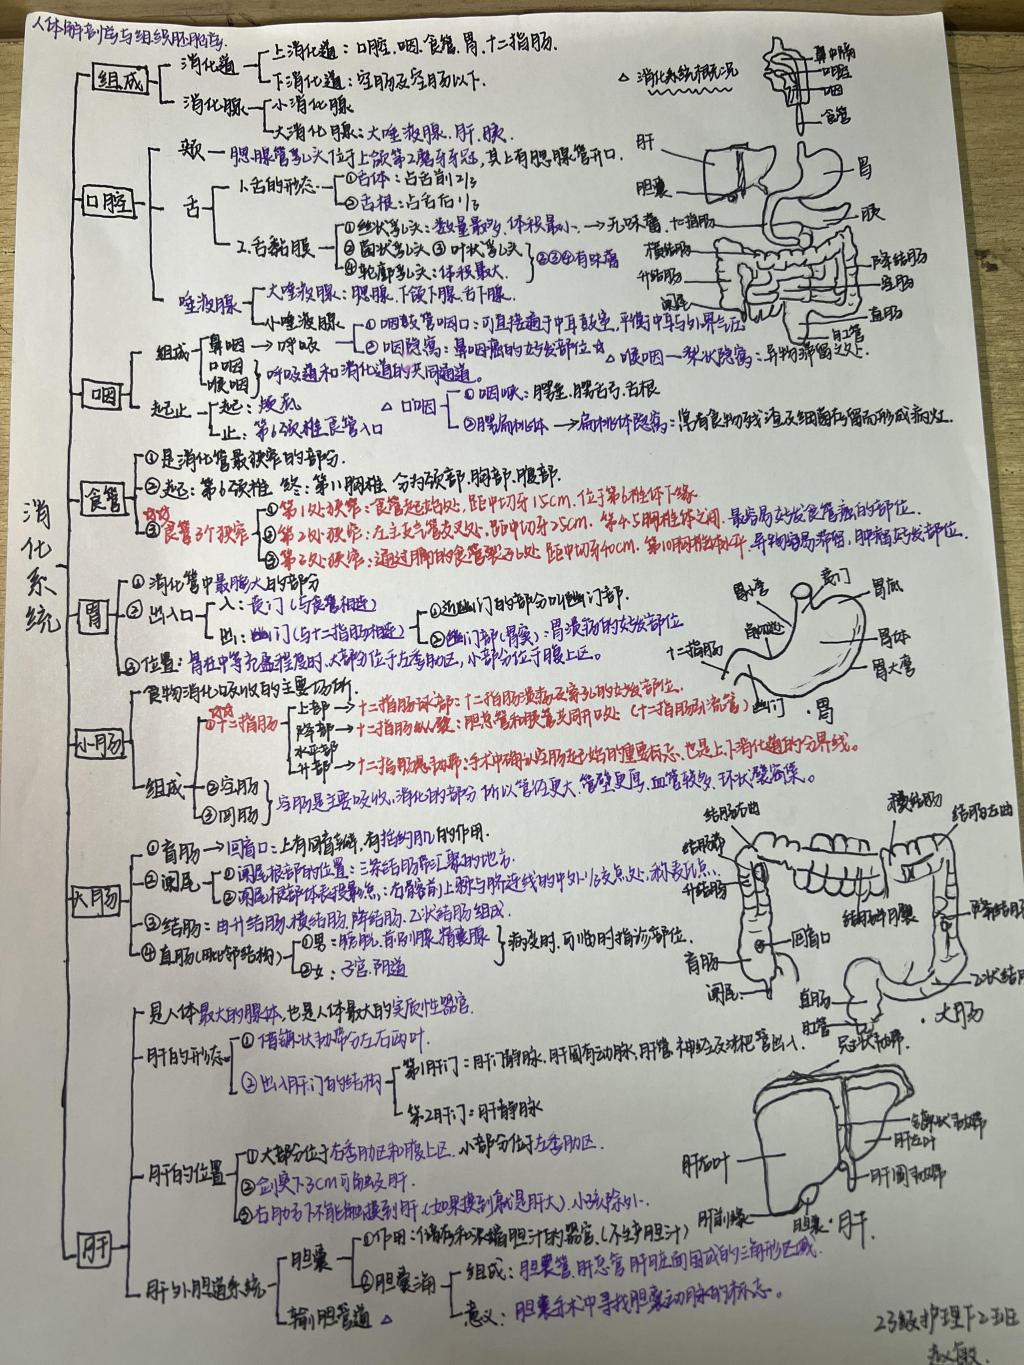 人体解剖学与组织胚胎学
消化系统
△ 消化系统概况
组成
消化道
上消化道：口腔.咽.食管.胃.十二指肠.
下消化道：空肠及空肠以下.
消化腺
小消化腺
大消化腺：大唾液腺.肝.胰.
口腔
颊
腮腺管乳头位于上颌第2磨牙牙冠，其上有腮腺管开口.
舌
1.舌的形态
①舌体：占舌前2/3
②舌根：占舌后1/3
2.舌黏膜
①丝状乳头：数量最多.体积最小.→无味蕾.
②菌状乳头 ③叶状乳头
④轮廓乳头：体积最大.
②③④有味蕾
唾液腺
大唾液腺：腮腺.下颌下腺.舌下腺.
小唾液腺
咽
组成
鼻咽→呼吸
①咽鼓管咽口：可直接通于中耳鼓室，平衡中耳与外界气压
②咽隐窝：鼻咽癌的好发部位☆
△喉咽—梨状隐窝：异物滞留之处.
口咽
喉咽
呼吸道和消化道的共同通道。
起止
起：颅底
止：第6颈椎食管入口
△口咽
①咽峡：腭垂.腭舌弓.舌根
②腭扁桃体→扁桃体隐窝：常有食物残渣及细菌存留而形成病灶.
食管
①是消化管最狭窄的部分.
②起：第6颈椎 终：第11胸椎 分为颈部.胸部.腹部.
☆☆
③食管3个狭窄
①第1处狭窄：食管起始处，距中切牙15cm，位于第6椎体下缘.
②第2处狭窄：左主支气管交叉处，距中切牙25cm，第4.5胸椎体之间.
③第3处狭窄：通过膈的食管裂孔处 距中切牙40cm，第10胸椎水平.
最容易好发食管癌的部位.
异物容易滞留，肿瘤好发部位.
胃
①消化管中最膨大的部分
②出入口
入：贲门（与食管相连）
出：幽门（与十二指肠相连）
①近幽门的部分叫幽门部.
②幽门部（胃窦）：胃溃疡的好发部位
③位置：胃在中等充盈程度时，大部分位于左季肋区，小部分位于腹上区。
小肠
食物消化吸收的主要场所.
组成
☆☆
①十二指肠
上部→十二指肠球部：十二指肠溃疡及穿孔的好发部位.
降部→十二指肠纵襞：胆总管和胰管共同开口处（十二指肠引流管）
水平部
升部→十二指肠悬韧带：手术中确认空肠起始的重要标志，也是上.下消化道的分界线。
②空肠
③回肠
空肠是主要吸收，消化的部分 所以管径更大，管壁更厚，血管较多，环状襞密集。
大肠
①盲肠→回盲口：上有回盲瓣，有括约肌的作用.
②阑尾
①阑尾根部的位置：三条结肠带汇聚的地方
②阑尾根部体表投影点：右髂前上棘与脐连线的中外1/3交点处，称麦氏点.
③结肠：由升结肠.横结肠.降结肠.乙状结肠组成.
④直肠（毗邻结构）
①男：膀胱，前列腺，精囊腺
②女：子宫.阴道
病变时，可临时指诊部位.
肝
是人体最大的腺体，也是人体最大的实质性器官.
肝的形态
①借镰状韧带分左右两叶.
②出入肝门的结构
第1肝门：肝门静脉.肝固有动脉，肝管.神经及淋巴管出入.
第2肝门：肝静脉
肝的位置
①大部分位于右季肋区和腹上区.小部分位于左季肋区.
②剑突下3cm可触及肝.
③右肋弓下不能触摸到肝（如果摸到就是肝大），小孩除外.
肝外胆道系统
胆囊
①作用：储存和浓缩胆汁的器官.（不生产胆汁）
②胆囊三角
组成：胆囊管.肝总管.肝脏面围成的三角形区域.
意义：胆囊手术中寻找胆囊动脉的标志。
输胆管道 △
鼻中隔
口腔
咽
食管
肝
胆囊
胃
胰
十二指肠
横结肠
升结肠
阑尾
降结肠
空肠
直肠
肛管
胃小弯
角切迹
十二指肠
贲门
胃底
胃体
胃大弯
幽门
.胃
结肠右曲
横结肠
结肠左曲
结肠带
升结肠
降结肠
回盲口
盲肠
阑尾
直肠
肛管
乙状结肠
.大肠
冠状韧带.
镰状韧带
肝左叶
肝右叶
肝圆韧带
肝前缘
胆囊
.肝.
23级护理下2班